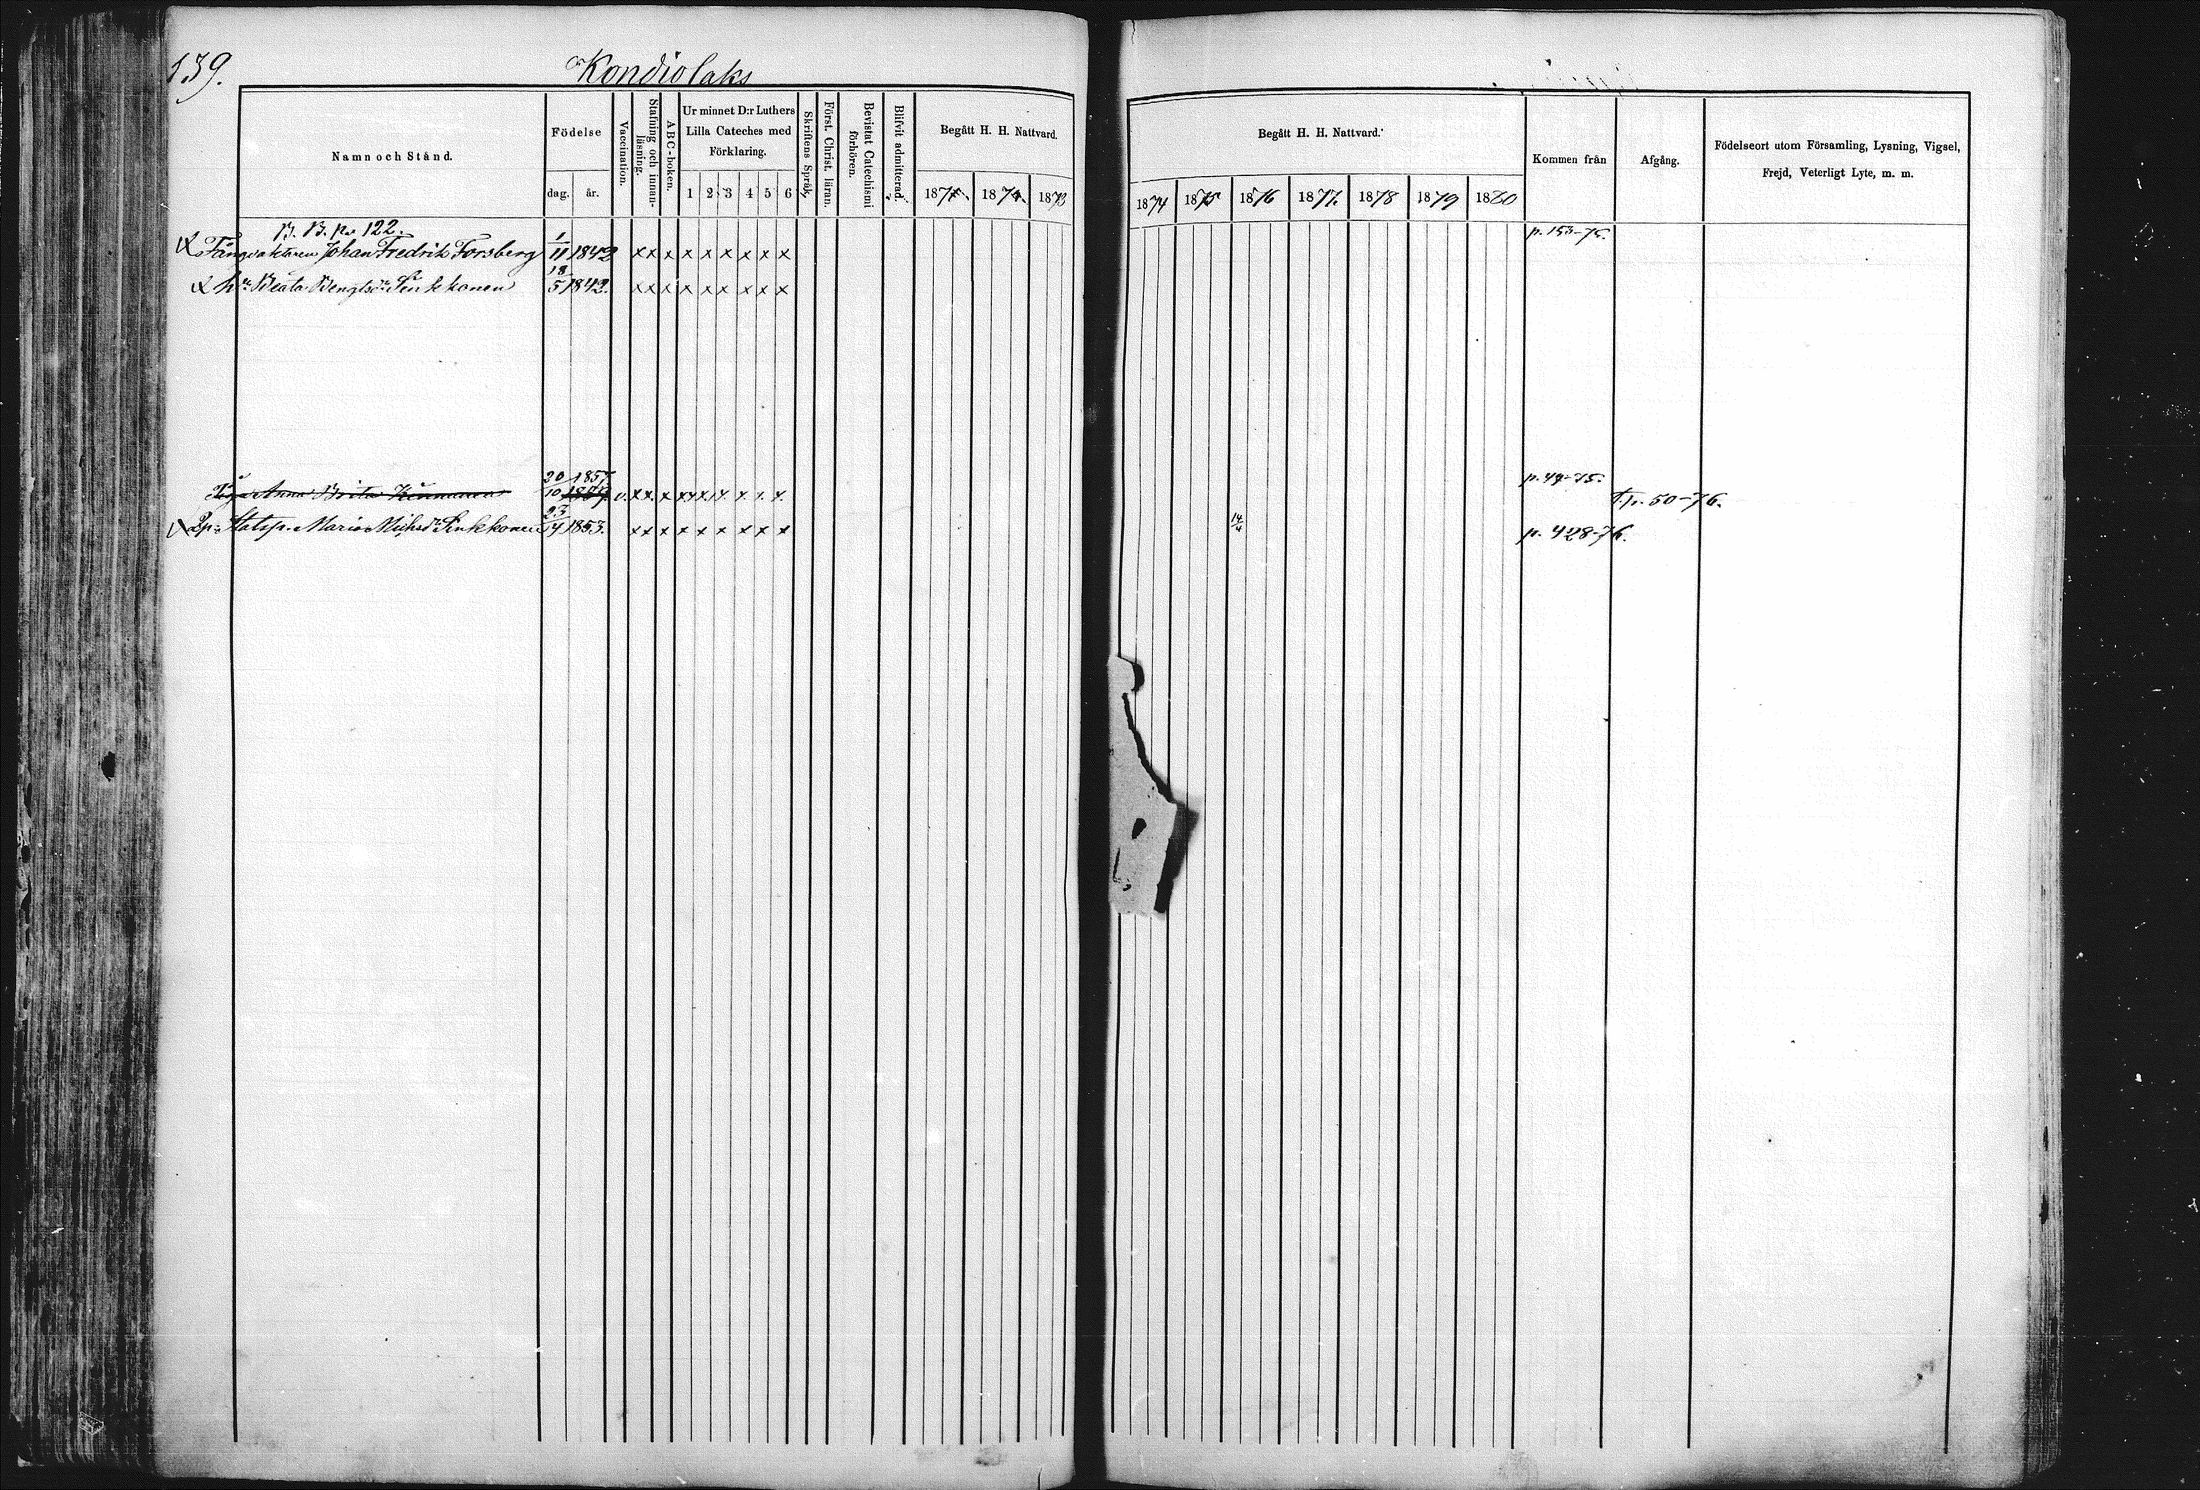 139.
Kondiolaks
Namn och Stånd.
Födelse
dag.
år.
Vaccination.
Stafning och innan-
läsning.
ABC-boken.
Ur minnet D:r Luthers
Lilla Cateches med
Förklaring.
1 2 3 4 5 6
Skriftens Språk.
Först. Christ. läran.
Bevistat Catechismi
förhören.
Blifvit admitterad.
Begått H. H. Nattvard.
1873
Begått H. H. Nattvard.
1874 1875 1876 1877. 1878 1879 1880
Kommen från
Afgång.
Födelseort utom Församling, Lysning, Vigsel,
Frejd, Veterligt Lyte, m. m.
B. B. p. 122.
Johan Fredrik Forsberg 1/11 1842 x x x x x x x x x p. 153-75.
h:u Beata Bengtsd:r Sinkkonen 18/5 1842. x x x x x x x x x
Piga Anna Brita 20/10 1857 v. x x x x x x x x x p. 49-75. p. 50-76.
Maria Michsd:r Sinkkonen 23/4 1853. x x x x x x x x x 14/4 p. 428-76.